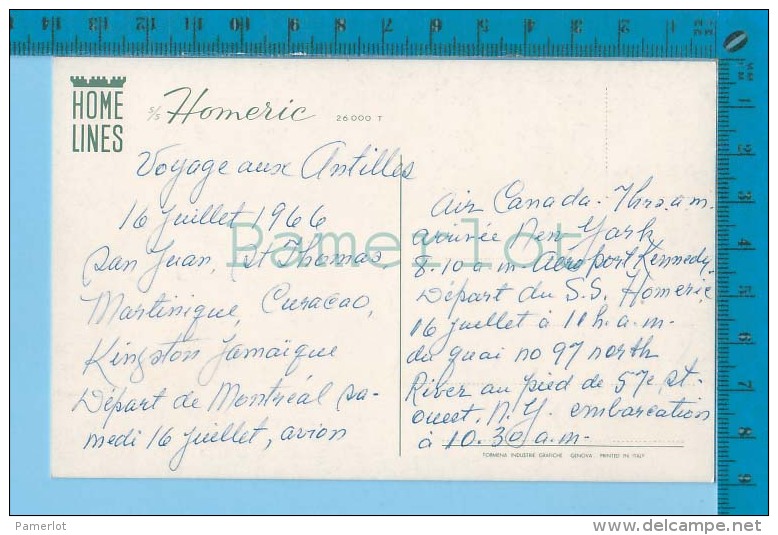 HOME
LINES
S/S Homeric 26000 T
Voyage aux Antilles
16 juillet 1966
San Juan, St Thomas,
Martinique, Curacao,
Kingston Jamaïque
Départ de Montréal sa-
medi 16 juillet, avion
Air Canada - 7hrs a.m.
arrivée New York
8.10 a.m. Aéroport Kennedy.
Départ du S.S. Homeric
16 juillet à 11 h. a.m.
du quai no 97 north
River au pied de 57e st.
ouest. N.Y. embarcation
à 10.30 a.m.
FORMENA INDUSTRIE GRAFICHE GENOVA - PRINTED IN ITALY
Pamerlot
Pamerlot
delcampe.net